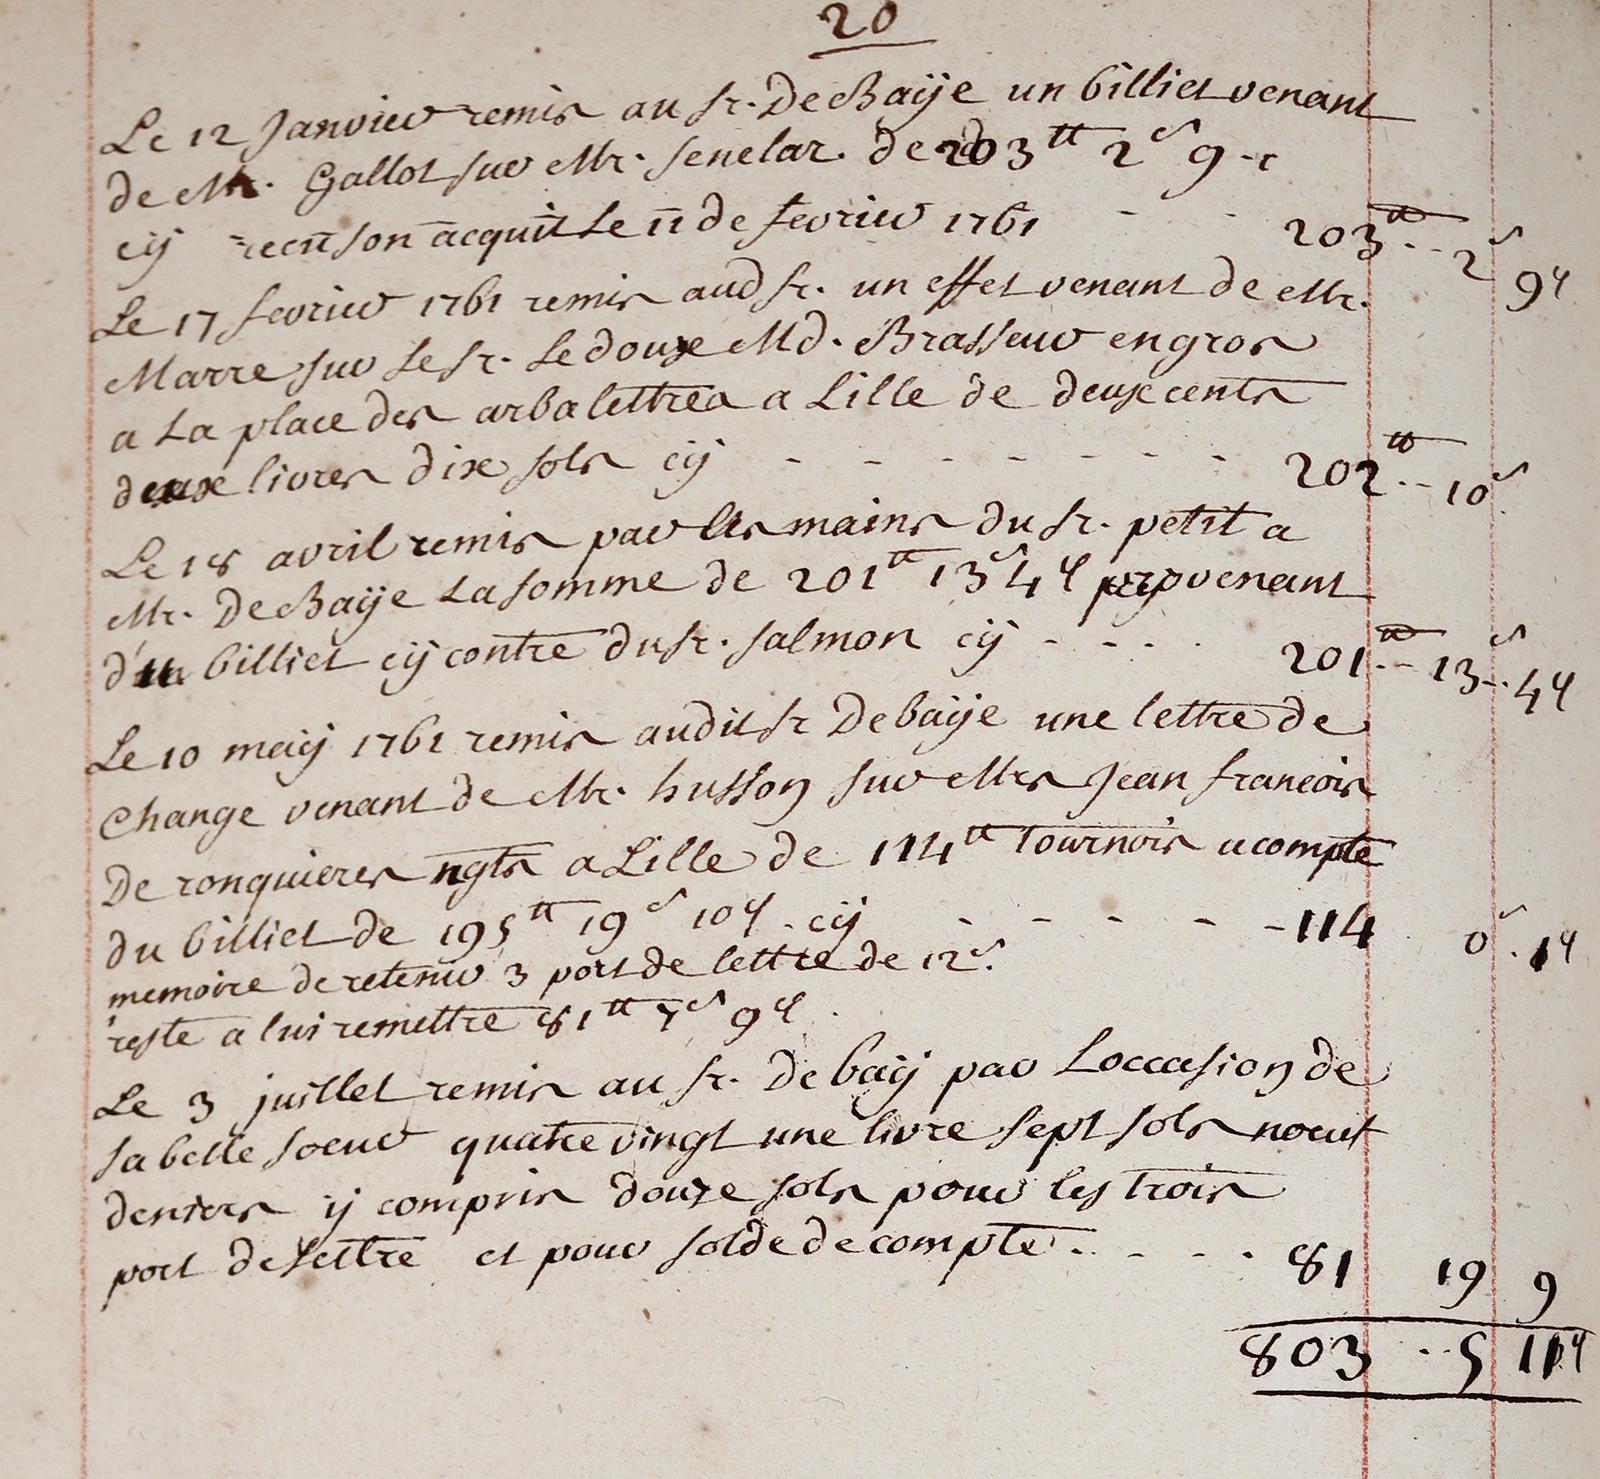 20
Le 12 Janvier remis au sr. De Baÿe un billiet venant
de Mr. Gallot sur Mr. senelar. de 203tt 2s 9.
cÿ recu son acquit Le 11 de fevrier 1761 - - 203tt .. 2s 9d
Le 17 fevrier 1761 remis aud sr. un effet venant de Mr.
Marre sur Le sr. Le douxe Md. Brasseur en gros
a La place des arbalettres a Lille de deux cents
deuxe livres dix sols cÿ - - - - - - - 202tt .. 10s
Le 18 avril remis par les mains du sr. petit a
Mr. De Baÿe La somme de 201tt 13s 4d provenant
d'un billiet cÿ contre du sr. salmon cÿ - - - - 201tt .. 13s .. 4d
Le 10 maÿ 1761 remis audit sr De baÿe une lettre de
Change venant de Mr. husson sur Mrs Jean francois
De ronquieres ngts a Lille de 114tt Tournois a compte
du billiet de 195tt 19s 10d. cÿ - - - - - 114 0s . 1d
memoire de retenir 3 port de lettre de 12s.
reste a lui remettre 81tt 7s 9d.
Le 3 juillet remis au sr. De baÿ par Loccasion de
sa belle soeur quatre vingt une livre sept sols noeuf
deniers ÿ compris douze sols pour les trois
port de Lettre et pour solde de compte . - - - 81 19 9
803 .. 5 11d